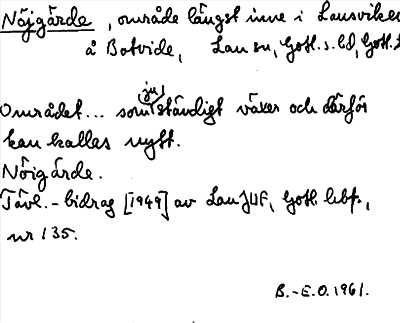 Nöjgärde, område längst inne i Lausviken
å Botvide, Lau sn, Gotl. s. hd, Gotl. l
Området... som (ju) ständigt växer och därför
kan kallas nytt.
Nöigärde.
Tävl.-bidrag [1949] av Lau JUF, Gotl. lbf.,
nr 135.
B.-E.O. 1961.